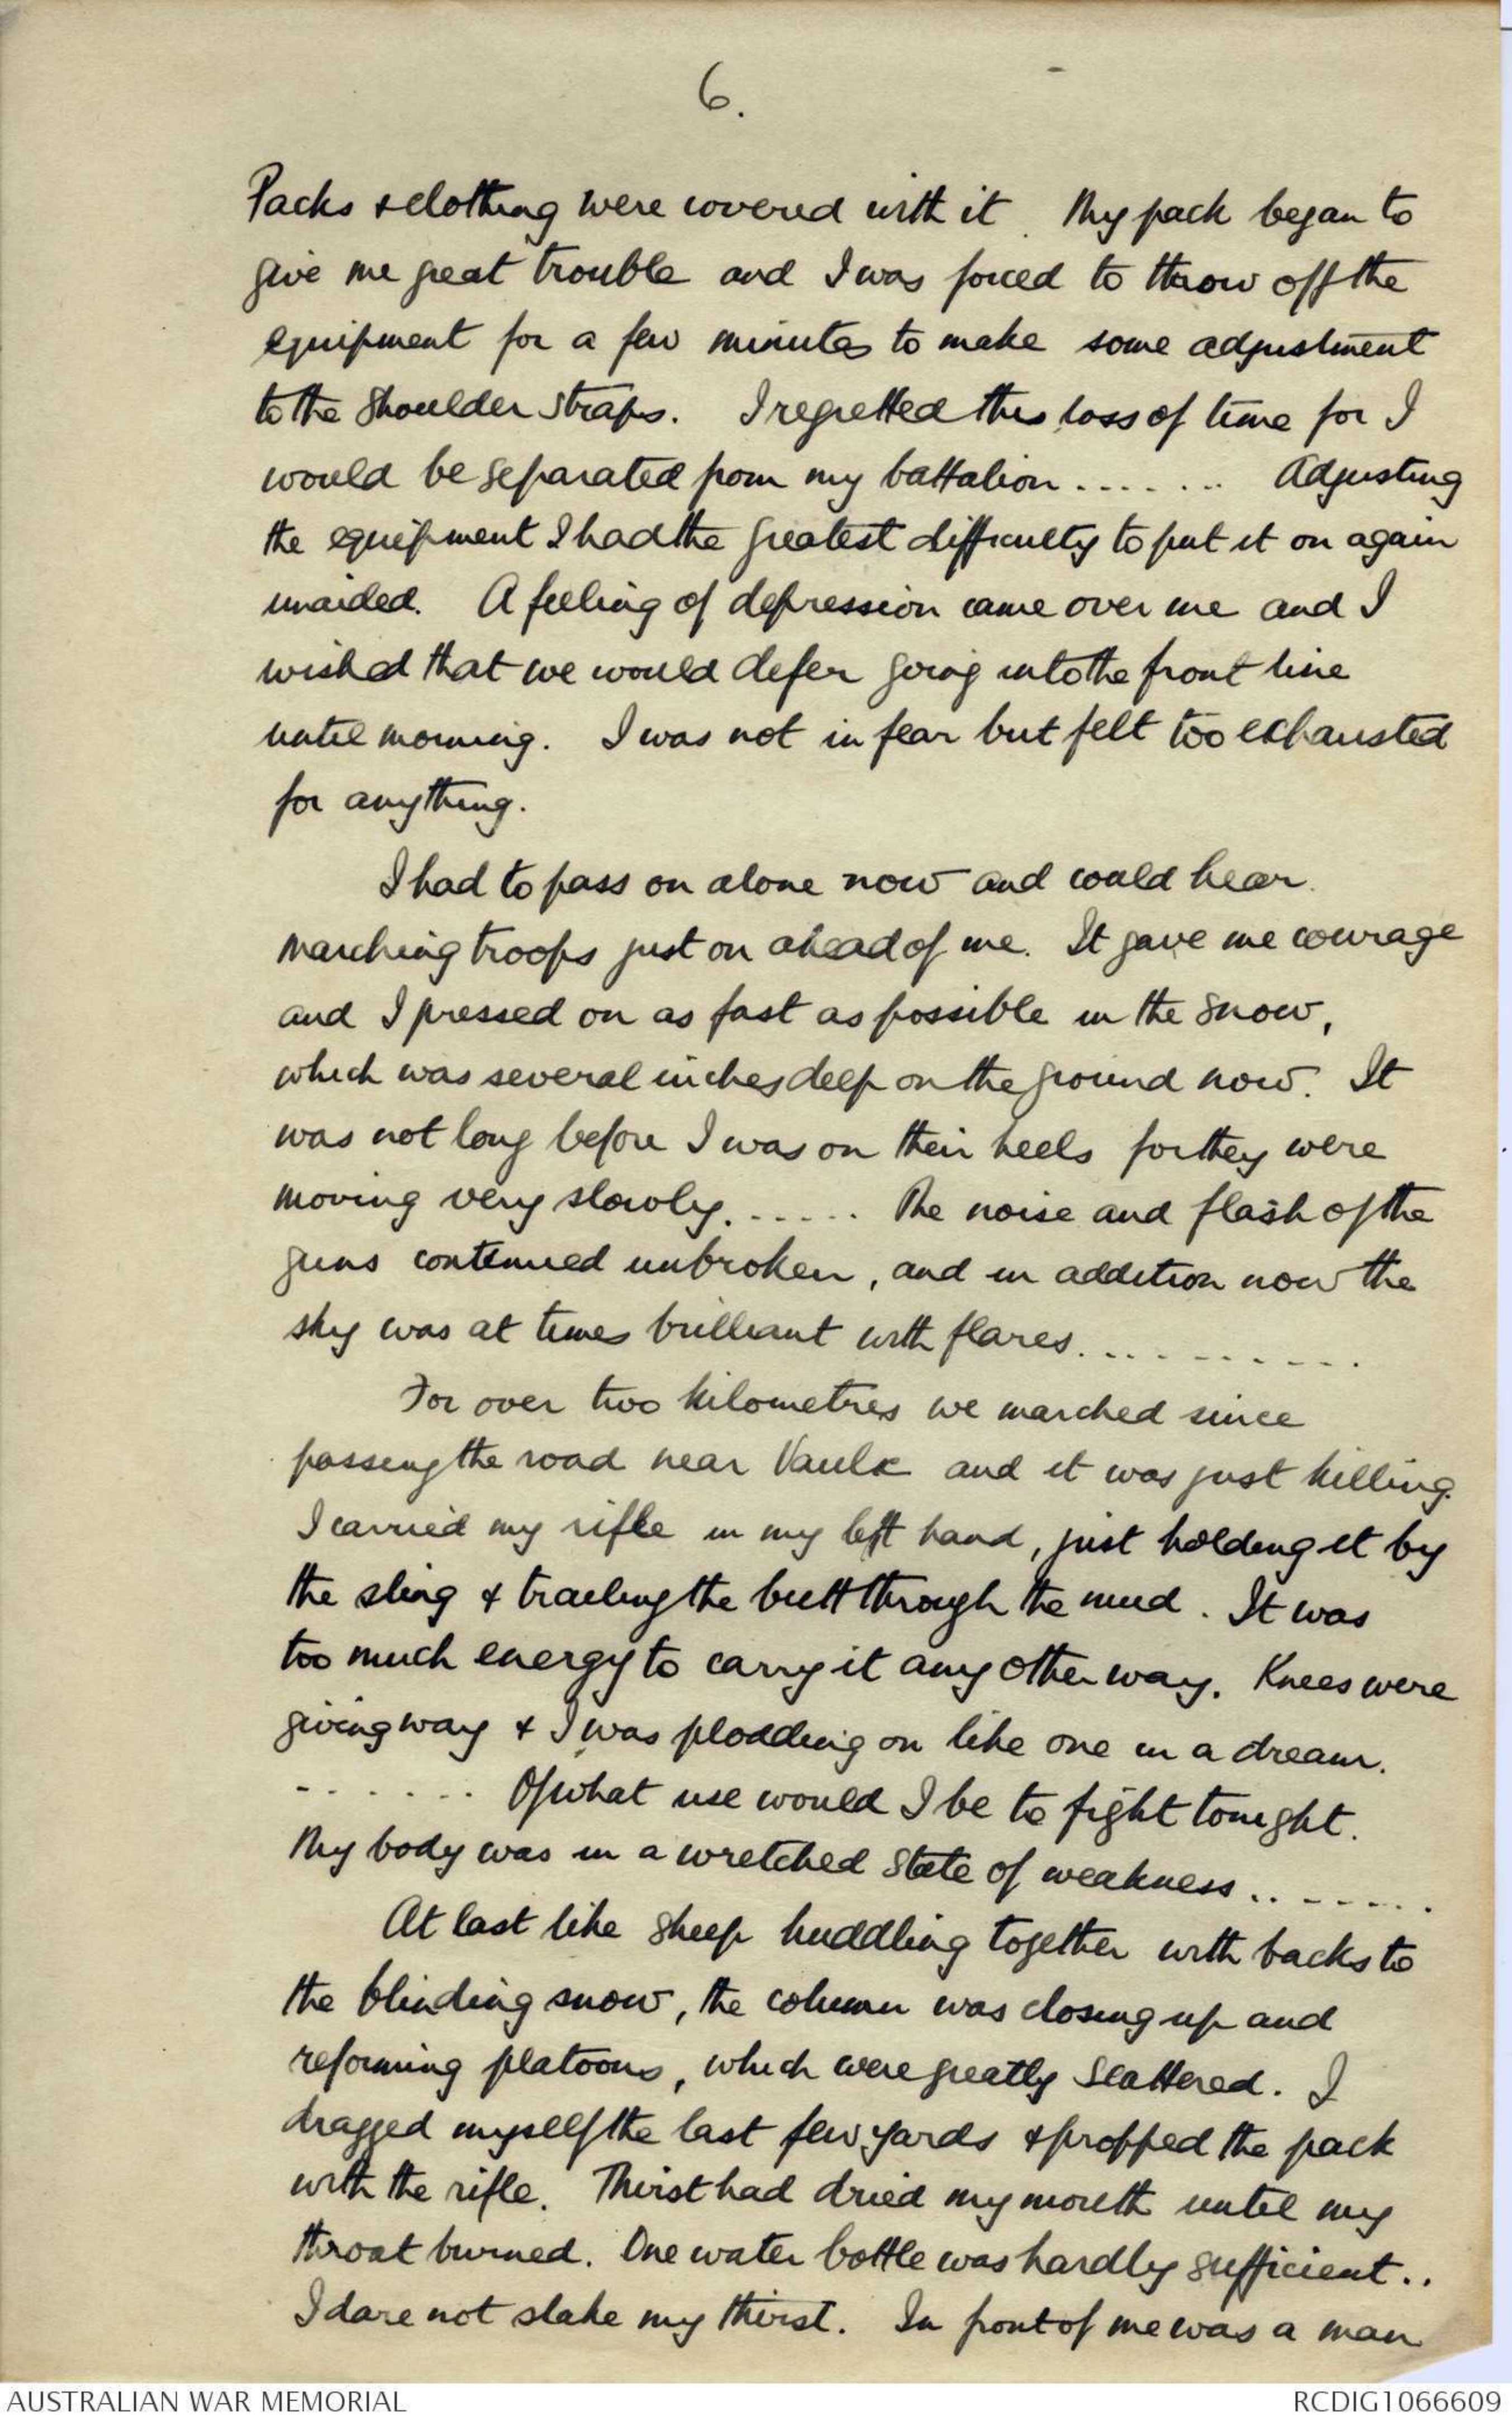 6.
Packs & clothing were covered with it. My pack began to
give me great trouble and I was forced to throw off the
equipment for a few minutes to make some adjustment
to the shoulder straps. I regretted this loss of time for I
would be separated from my battalion ....... Adjusting
the equipment I had the greatest difficulty to put it on again
unaided. A feeling of depression came over me and I
wished that we would defer going into the front line
until morning. I was not in fear but felt too exhausted
for anything.
I had to pass on alone now and could hear
marching troops just on ahead of me. It gave me courage
and I pressed on as fast as possible in the snow,
which was several inches deep on the ground now. It
was not long before I was on their heels for they were
moving very slowly. ..... The noise and flash of the
guns continued unbroken, and in addition now the
sky was at times brilliant with flares. .........
For over two kilometres we marched since
passing the road near Vaulx and it was just killing.
I carried my rifle in my left hand, just holding it by
the sling & trailing the butt through the mud. It was
too much energy to carry it any other way. Knees were
giving way & I was plodding on like one in a dream.
....... Of what use would I be to fight tonight.
My body was in a wretched state of weakness ........
At last like sheep huddling together with backs to
the blinding snow, the column was closing up and
reforming platoons, which were greatly scattered. I
dragged myself the last few yards & propped the pack
with the rifle. Thirst had dried my mouth until my
throat burned. One water bottle was hardly sufficient..
I dare not slake my thirst. In front of me was a man
AUSTRALIAN WAR MEMORIAL
RCDIG1066609